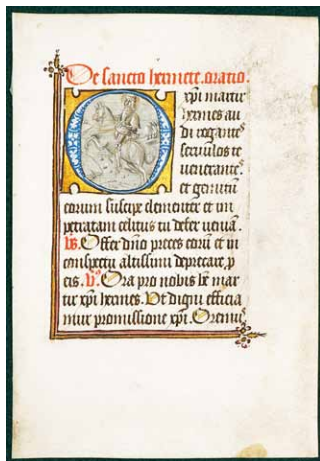 De sancto hermete. oratio.
O xpi martir
hermes au
di rogantes
servulos te
venerantes.
et gemitū
eorum suscipe clementer et im
petratam celitus tu defer veniā.
Offer dn̄o preces eorū et in
conspectu altissimi deprecare p
cis. V. Ora pro nobis bē mar
tir xpi hermes. Vt digni efficia
mur promissione xpi. Oremus